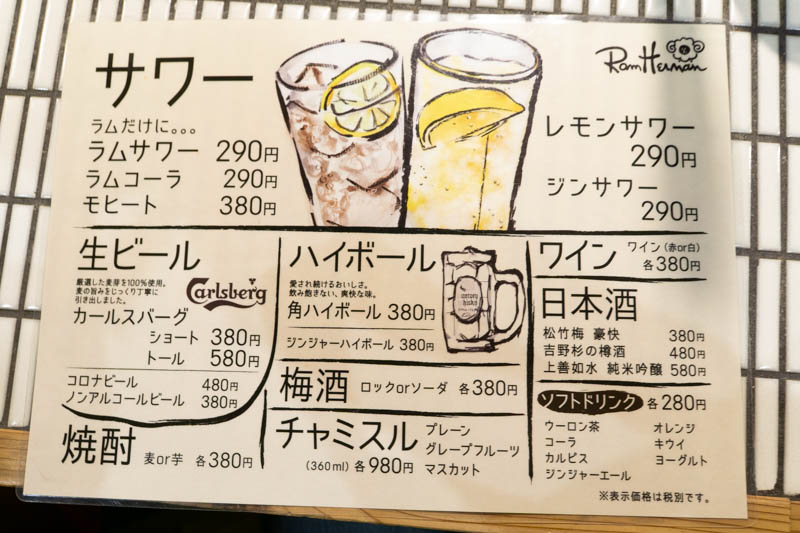 サワー
ラムだけに。。。
ラムサワー 290円
ラムコーラ 290円
モヒート 380円
Ram Herman
レモンサワー
290円
ジンサワー
290円
生ビール
厳選した麦芽を100%使用。
麦の旨みをじっくり丁寧に
引き出しました。
Carlsberg
カールスバーグ
ショート 380円
トール 580円
コロナビール 480円
ノンアルコールビール 380円
焼酎 麦or芋 各380円
ハイボール
愛され続けるおいしさ。
飲み飽きない、爽快な味。
角ハイボール 380円
ジンジャーハイボール 380円
梅酒 ロックorソーダ 各380円
チャミスル
(360ml) 各980円
プレーン
グレープフルーツ
マスカット
ワイン ワイン(赤or白)
各380円
日本酒
松竹梅 豪快 380円
吉野杉の樽酒 480円
上善如水 純米吟醸 580円
ソフトドリンク 各280円
ウーロン茶 オレンジ
コーラ キウイ
カルピス ヨーグルト
ジンジャーエール
※表示価格は税別です。